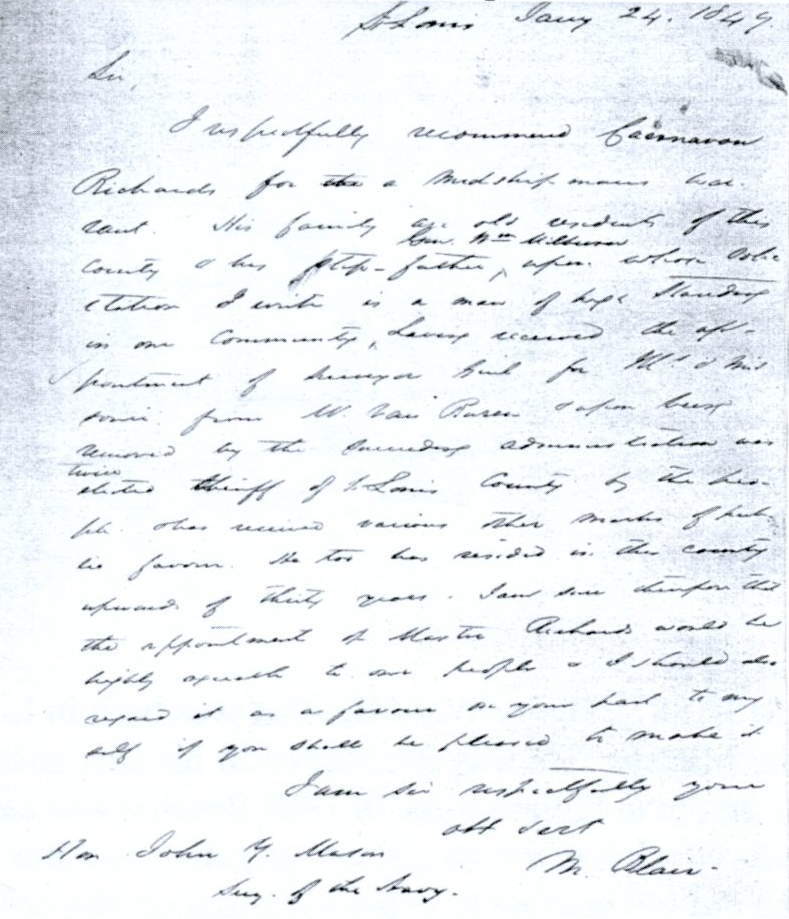 St Louis Jany 24. 1849
Sir,
I respectfully recommend Caernavon
Richards for the a Midshipmans war-
rant. His family are old residents of this
Genl. Wm Milburn
County & his step-father, upon whose soli-
citation I write is a man of high standing
in our Community, having received the ap-
pointment of Surveyor Genl for Ills & Mis
souri from Mr. Van Buren & upon being
removed by the succeeding administration was
twice
elected Sheriff of St. Louis County by the peo-
ple & has received various other marks of pub-
lic favour. He too has resided in this county
upwards of thirty years. I am sure therefore that
the appointment of Master Richards would be
highly agreeable to our people & I should also
regard it as a favour on your part to my
self if you shall be pleased to make it.
I am sir respectfully your
obt Servt
M. Blair.
Hon John Y. Mason
Secy. of the Navy.